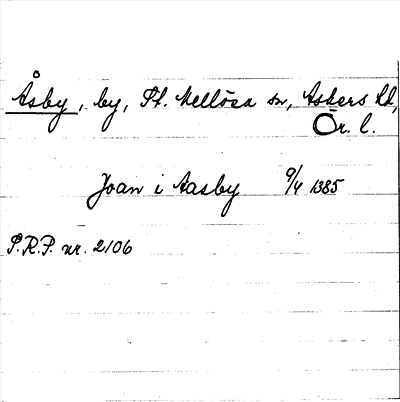 Åsby, by, St. Mellösa sn, Askers hd,
Ör. l.
Joan i Aasby 9/4 1385
S.R.P. nr. 2106